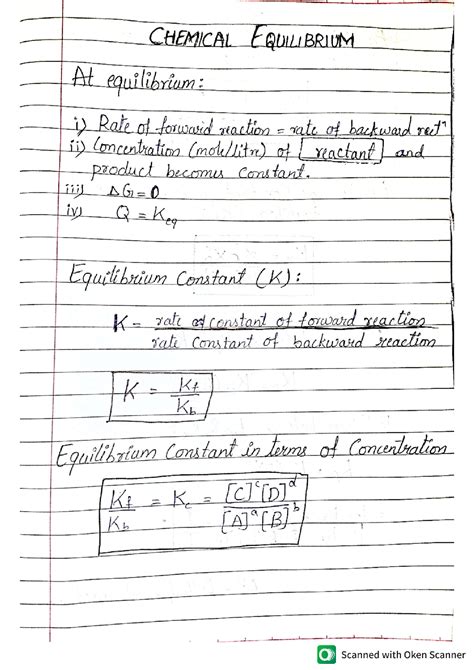 CHEMICAL EQUILIBRIUM
At equilibrium:
i) Rate of forward reaction = rate of backward rectⁿ
ii) Concentration (mole/litre) of reactant and
product becomes constant.
iii) ΔG = 0
iv) Q = Keq
Equilibrium Constant (K):
K = rate constant of forward reaction
rate constant of backward reaction
K = Kf
Kb
Equilibrium Constant in terms of Concentration
Kf = Kc = [C]ᶜ[D]ᵈ
Kb [A]ᵃ[B]ᵇ
Scanned with Oken Scanner